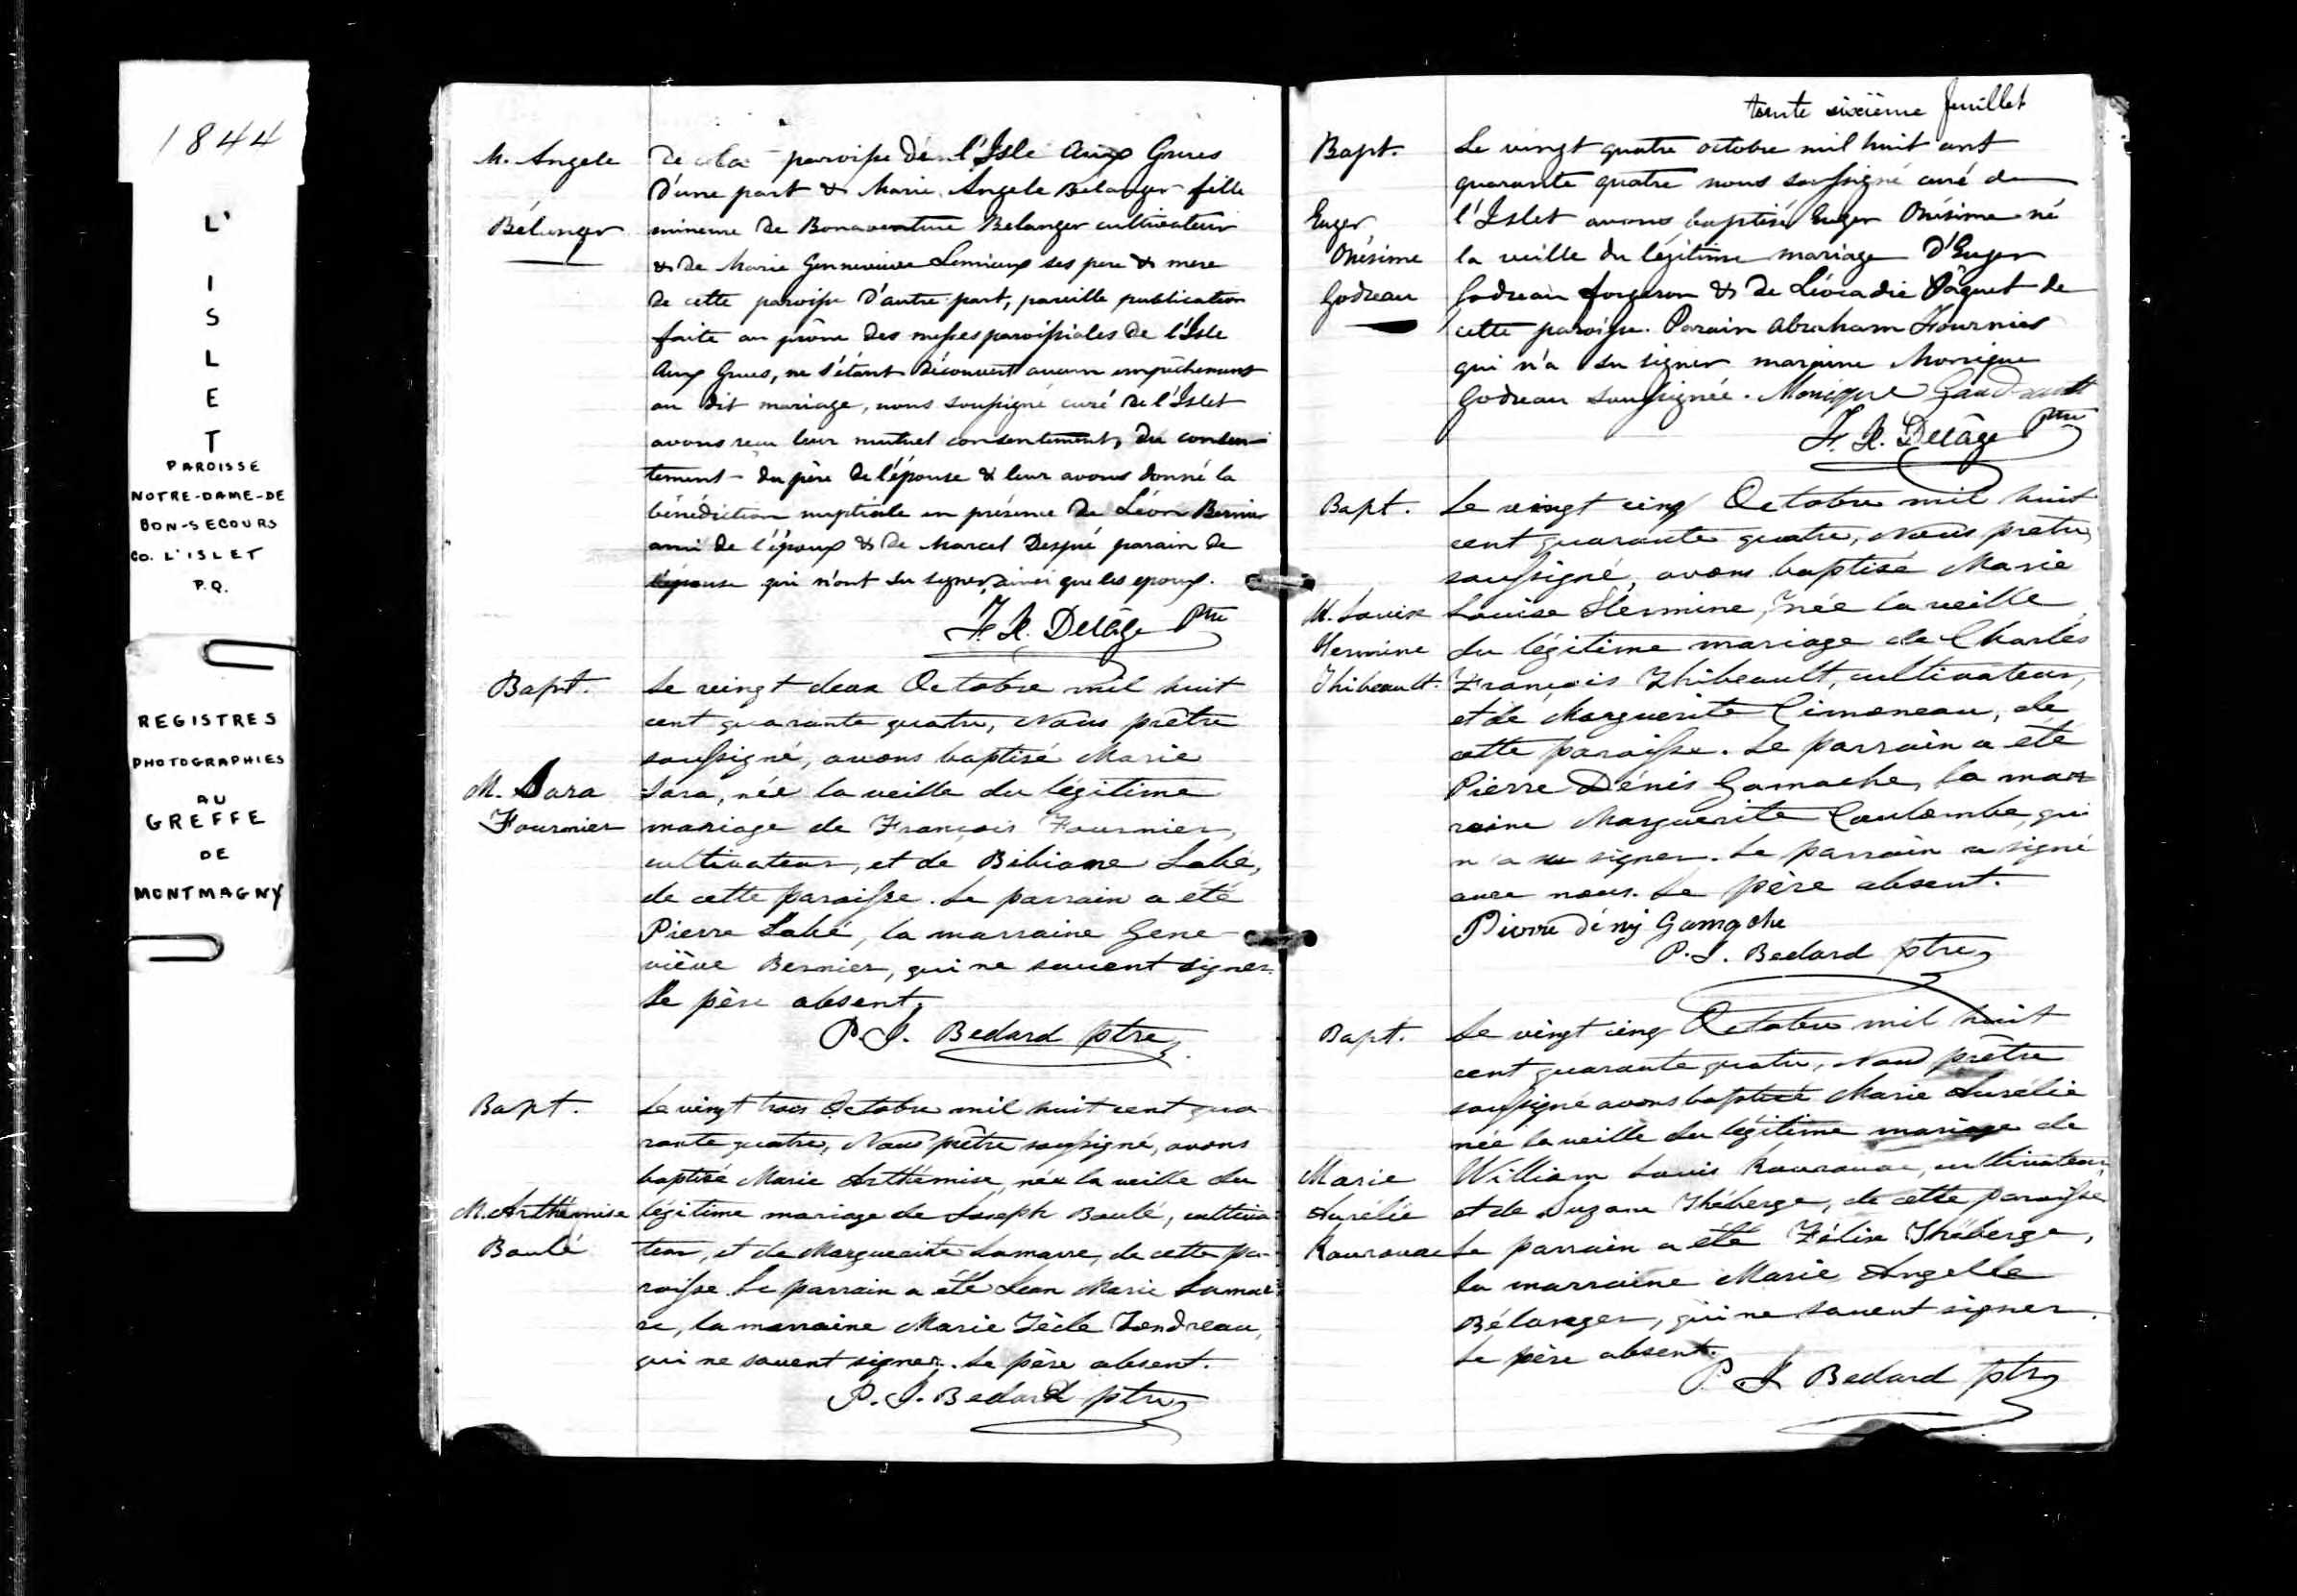 1844
L'
I
S
L
E
T
PAROISSE
NOTRE-DAME-DE
BON-SECOURS
CO. L'ISLET
P.Q.
REGISTRES
PHOTOGRAPHIES
AU
GREFFE
DE
MONTMAGNY
M. Angele
Bélanger
de la paroisse de l'Isle aux Grues
d'une part & Marie Angele Belanger fille
mineure de Bonaventure Belanger cultivateur
& de Marie Gennevieve Lemieux ses pere & mere
de cette paroisse d'autre part, pareille publication
faite au prône des messes paroissiales de l'Isle
aux Grues, ne s'étant découvert aucun empêchement
au dit mariage, nous soussigné curé de l'Islet
avons reçu leur mutuel consentement, du consen-
tement du père de l'épouse & leur avons donné la
bénédiction nuptiale en présence de Léon Bernier
ami de l'époux & de Marcel Despré parain de
l'épouse qui n'ont su signer ainsi que les epoux.
F. X. Delâge Ptre
Bapt.
M. Sara
Fournier
Le vingt deux Octobre mil huit
cent quarante quatre, Nous prêtre
soussigné, avons baptisé Marie
Sara, née la veille du légitime
mariage de François Fournier,
cultivateur, et de Bibiane Labé,
de cette paroisse. Le parrain a été
Pierre Labé, la marraine Gene-
viève Bernier, qui ne savent signer.
Le père absent.
P. J. Bedard ptre
Bapt.
M. Arthémise
Boulé
Le vingt trois Octobre mil huit cent qua-
rante quatre, Nous prêtre soussigné, avons
baptisé Marie Arthémise, née la veille du
légitime mariage de Joseph Boulé, cultiva-
teur, et de Marguerite Lamarre, de cette pa-
roisse. Le parrain a été Jean Marie Lamar-
re, la marraine Marie Tècle Jondreau,
qui ne savent signer. Le père absent.
P. J. Bedard ptre
trente sixième feuillet
Bapt.
Euger
Onésime
Godreau
Le vingt quatre octobre mil huit cent
quarante quatre nous soussigné curé de
l'Islet avons baptisé Euger Onésime né
la veille du légitime mariage d'Euger
Godreau forgeron & de Léocadie Pâquet de
cette paroisse. Parain Abraham Fournier
qui n'a su signer maraine Monique
Godreau soussignée. Monique Gaudreault
F. X. Delâge Ptre
Bapt.
M. Louise
Hermine
Thibeault.
Le vingt cinq Octobre mil huit
cent quarante quatre, Nous prêtre
soussigné, avons baptisé Marie
Louise Hermine, née la veille
du légitime mariage de Charles
François Thibeault, cultivateur,
et de Marguerite Cimoneau, de
cette paroisse. Le parrain a été
Pierre Dénis Gamache, la mar
raine Marguerite Coulombe, qui
n'a su signer. Le parrain a signé
avec nous. Le père absent.
Pierre Déni Gamache
P. J. Bedard ptre
Bapt.
Marie
Aurélie
Kourouac
Le vingt cinq Octobre mil huit
cent quarante quatre, Nous prêtre
soussigné avons baptisé Marie Aurélie
née la veille du légitime mariage de
William Louis Kourouac, cultivateur,
et de Suzane Théberge, de cette paroisse
Le parrain a été Félix Théberge,
la marraine Marie Angelle
Bélanger, qui ne savent signer.
Le père absent.
P. J. Bedard ptre